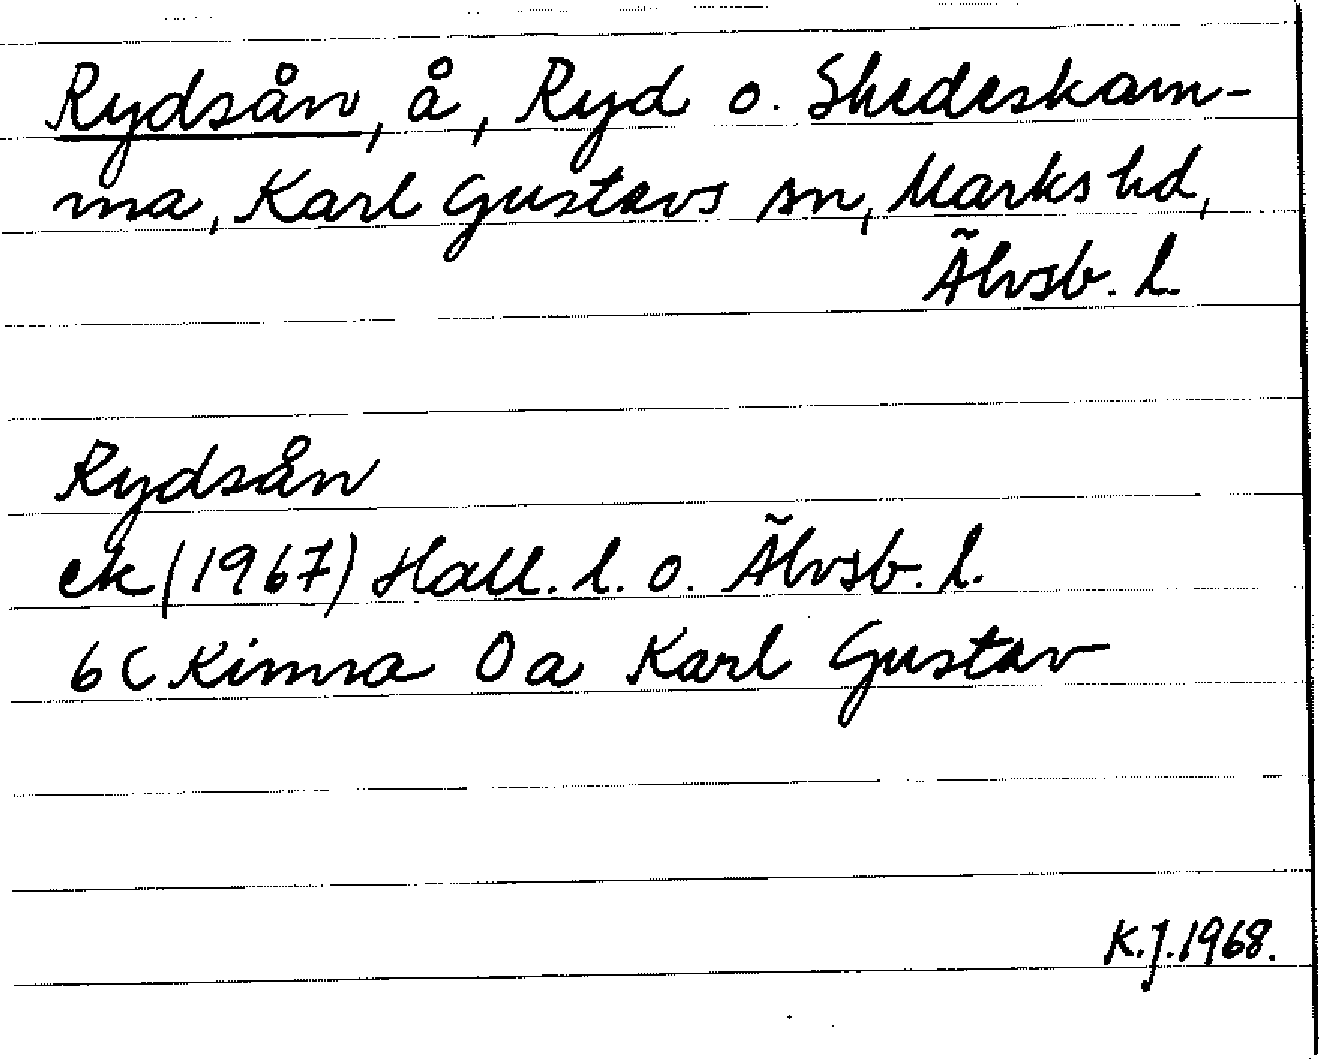 Rydsån, å, Ryd o. Skedeskam-
ma, Karl Gustavs sn, Marks hd,
Älvsb. l.
Rydsån
ek (1967) Hall. l. o. Älvsb. l.
6C Kinna 0a Karl Gustav
K.J. 1968.